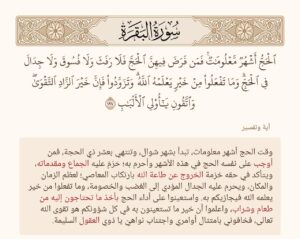 سُورَةُ البَقَرَةِ
ٱلۡحَجُّ أَشۡهُرٞ مَّعۡلُومَٰتٞۚ فَمَن فَرَضَ فِيهِنَّ ٱلۡحَجَّ فَلَا رَفَثَ وَلَا فُسُوقَ وَلَا جِدَالَ
فِي ٱلۡحَجِّۗ وَمَا تَفۡعَلُواْ مِنۡ خَيۡرٖ يَعۡلَمۡهُ ٱللَّهُۗ وَتَزَوَّدُواْ فَإِنَّ خَيۡرَ ٱلزَّادِ ٱلتَّقۡوَىٰۖ
وَٱتَّقُونِ يَٰٓأُوْلِي ٱلۡأَلۡبَٰبِ ١٩٧
آية وتفسير
وقت الحج أشهر معلومات، تبدأ بشهر شوال، وتنتهي بعشر ذي الحجة، فمن
أوجب على نفسه الحج في هذه الأشهر وأحرم به؛ حَرُمَ عليه الجماع ومقدماته،
ويتأكد في حقه حرمة الخروج عن طاعة الله بارتكاب المعاصي؛ لعظم الزمان
والمكان، ويحرم عليه الجدال المؤدي إلى الغضب والخصومة، وما تفعلوا من خير
يعلمه الله فيجازيكم به. واستعينوا على أداء الحج بأخذ ما تحتاجون إليه من
طعام وشراب، واعلموا أن خير ما تستعينون به في كل شؤونكم هو تقوى الله
تعالى، فخافوني بامتثال أوامري واجتناب نواهي يا ذوي العقول السليمة.